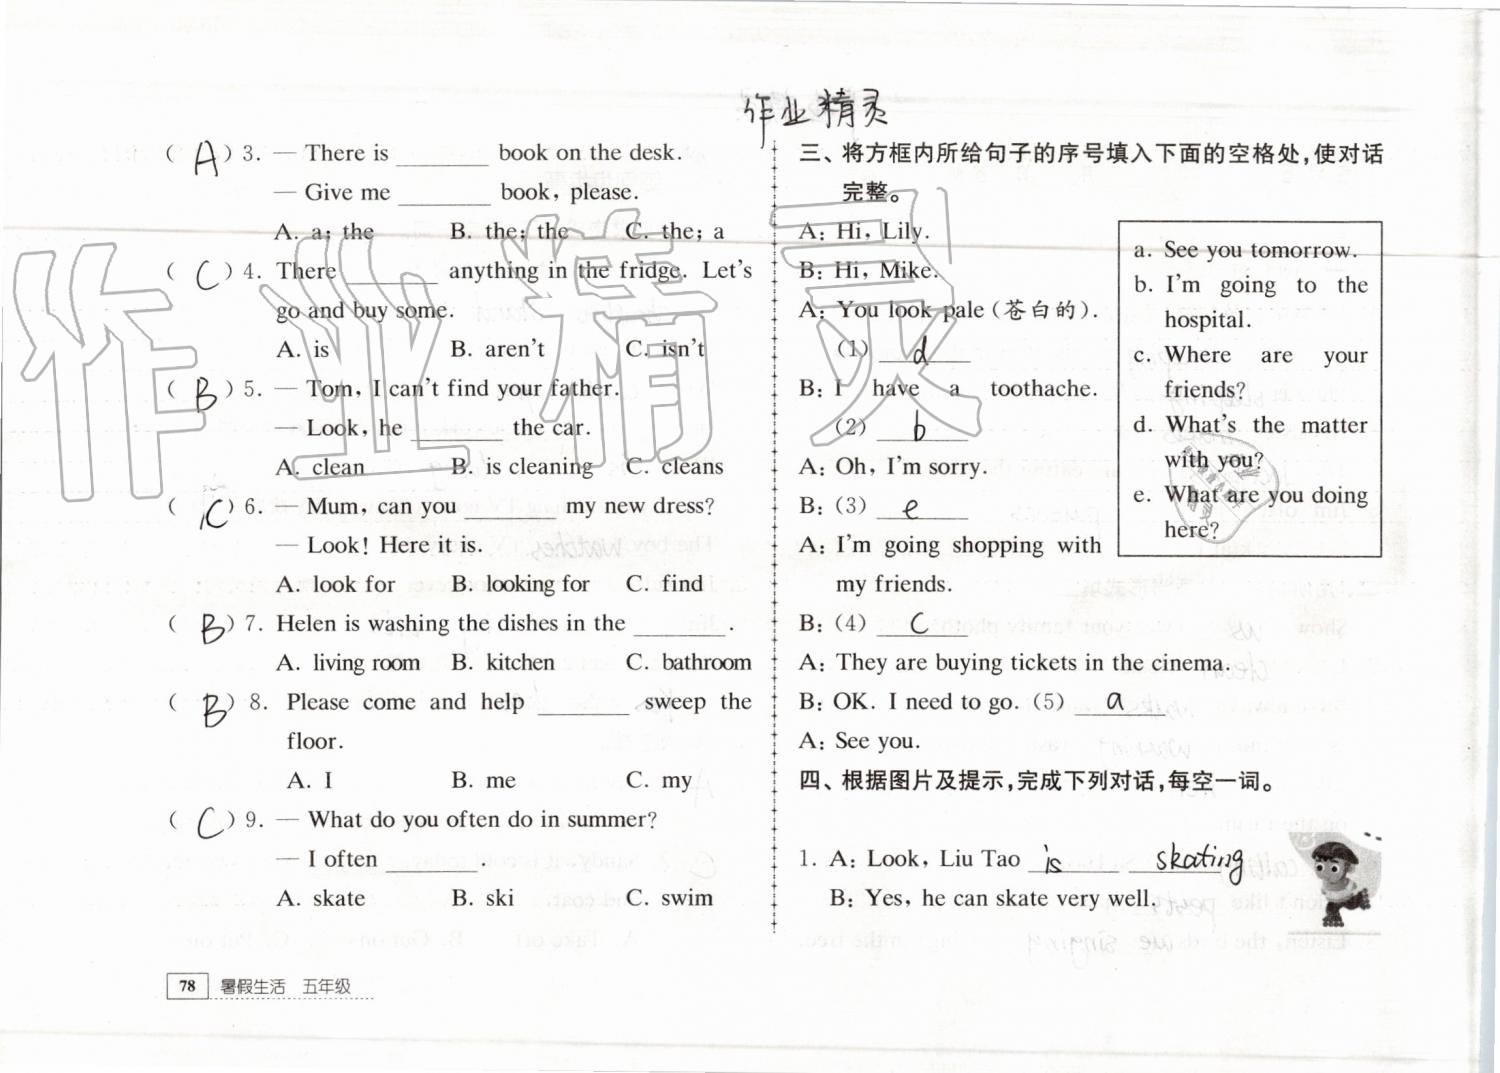 作业精灵
( A ) 3. — There is ________ book on the desk.
— Give me ________ book, please.
A. a; the B. the; the C. the; a
( C ) 4. There ________ anything in the fridge. Let's
go and buy some.
A. is B. aren't C. isn't
( B ) 5. — Tom, I can't find your father.
— Look, he ________ the car.
A. clean B. is cleaning C. cleans
( C ) 6. — Mum, can you ________ my new dress?
— Look! Here it is.
A. look for B. looking for C. find
( B ) 7. Helen is washing the dishes in the ________.
A. living room B. kitchen C. bathroom
( B ) 8. Please come and help ________ sweep the
floor.
A. I B. me C. my
( C ) 9. — What do you often do in summer?
— I often ________.
A. skate B. ski C. swim
78 暑假生活 五年级
三、将方框内所给句子的序号填入下面的空格处,使对话
完整。
A: Hi, Lily.
B: Hi, Mike.
A: You look pale(苍白的).
(1) d
B: I have a toothache.
(2) b
A: Oh, I'm sorry.
B: (3) e
A: I'm going shopping with
my friends.
B: (4) C
A: They are buying tickets in the cinema.
B: OK. I need to go. (5) a
A: See you.
a. See you tomorrow.
b. I'm going to the
hospital.
c. Where are your
friends?
d. What's the matter
with you?
e. What are you doing
here?
四、根据图片及提示,完成下列对话,每空一词。
1. A: Look, Liu Tao is skating
B: Yes, he can skate very well.
作业精灵